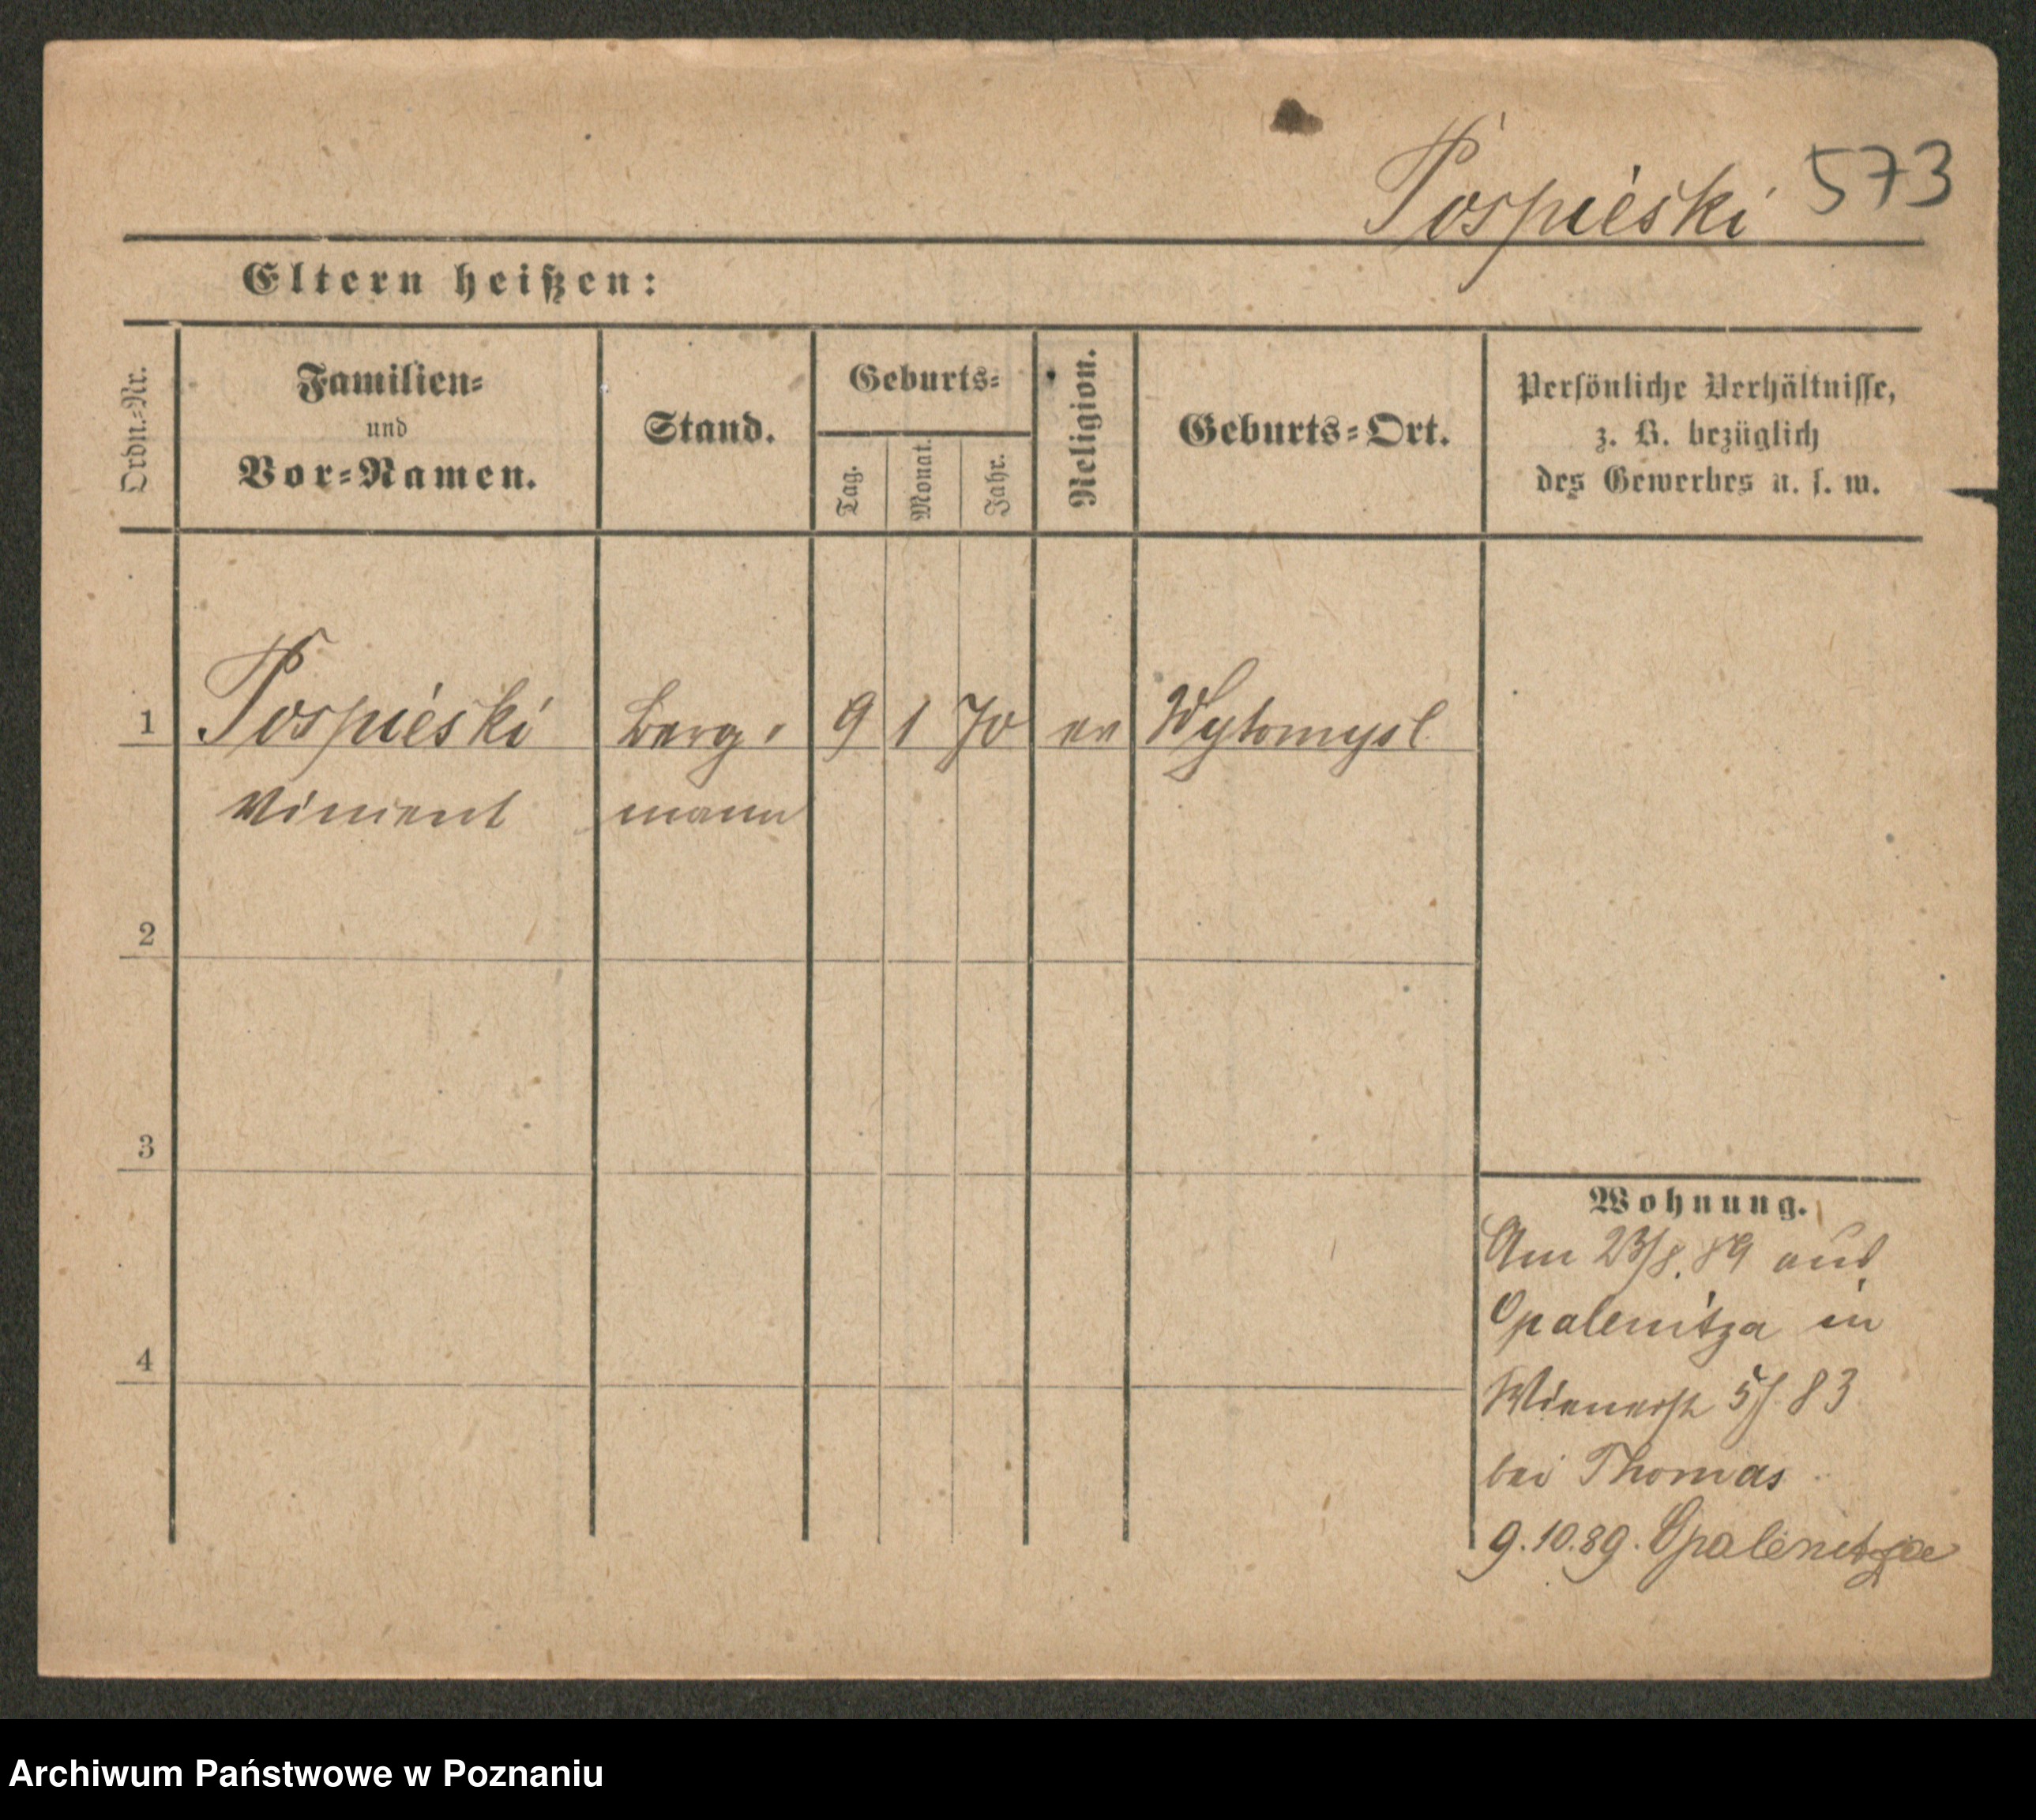 Pospieski 573
Eltern heißen:
Ordn.-Nr.
Familien-
und
Vor-Namen.
Stand.
Geburts-
Tag.
Monat.
Jahr.
Religion.
Geburts-Ort.
Persönliche Verhältnisse,
z. B. bezüglich
des Gewerbes u. s. w.
1 Pospieski Berg- 9 1 70 Wytomysl
Vincent mann
2
3
4
Wohnung.
Am 23/8. 89 aus
Opalenitza in
Wienerst 5/ 83
bei Thomas
9.10.89. Opalenitza
Archiwum Państwowe w Poznaniu